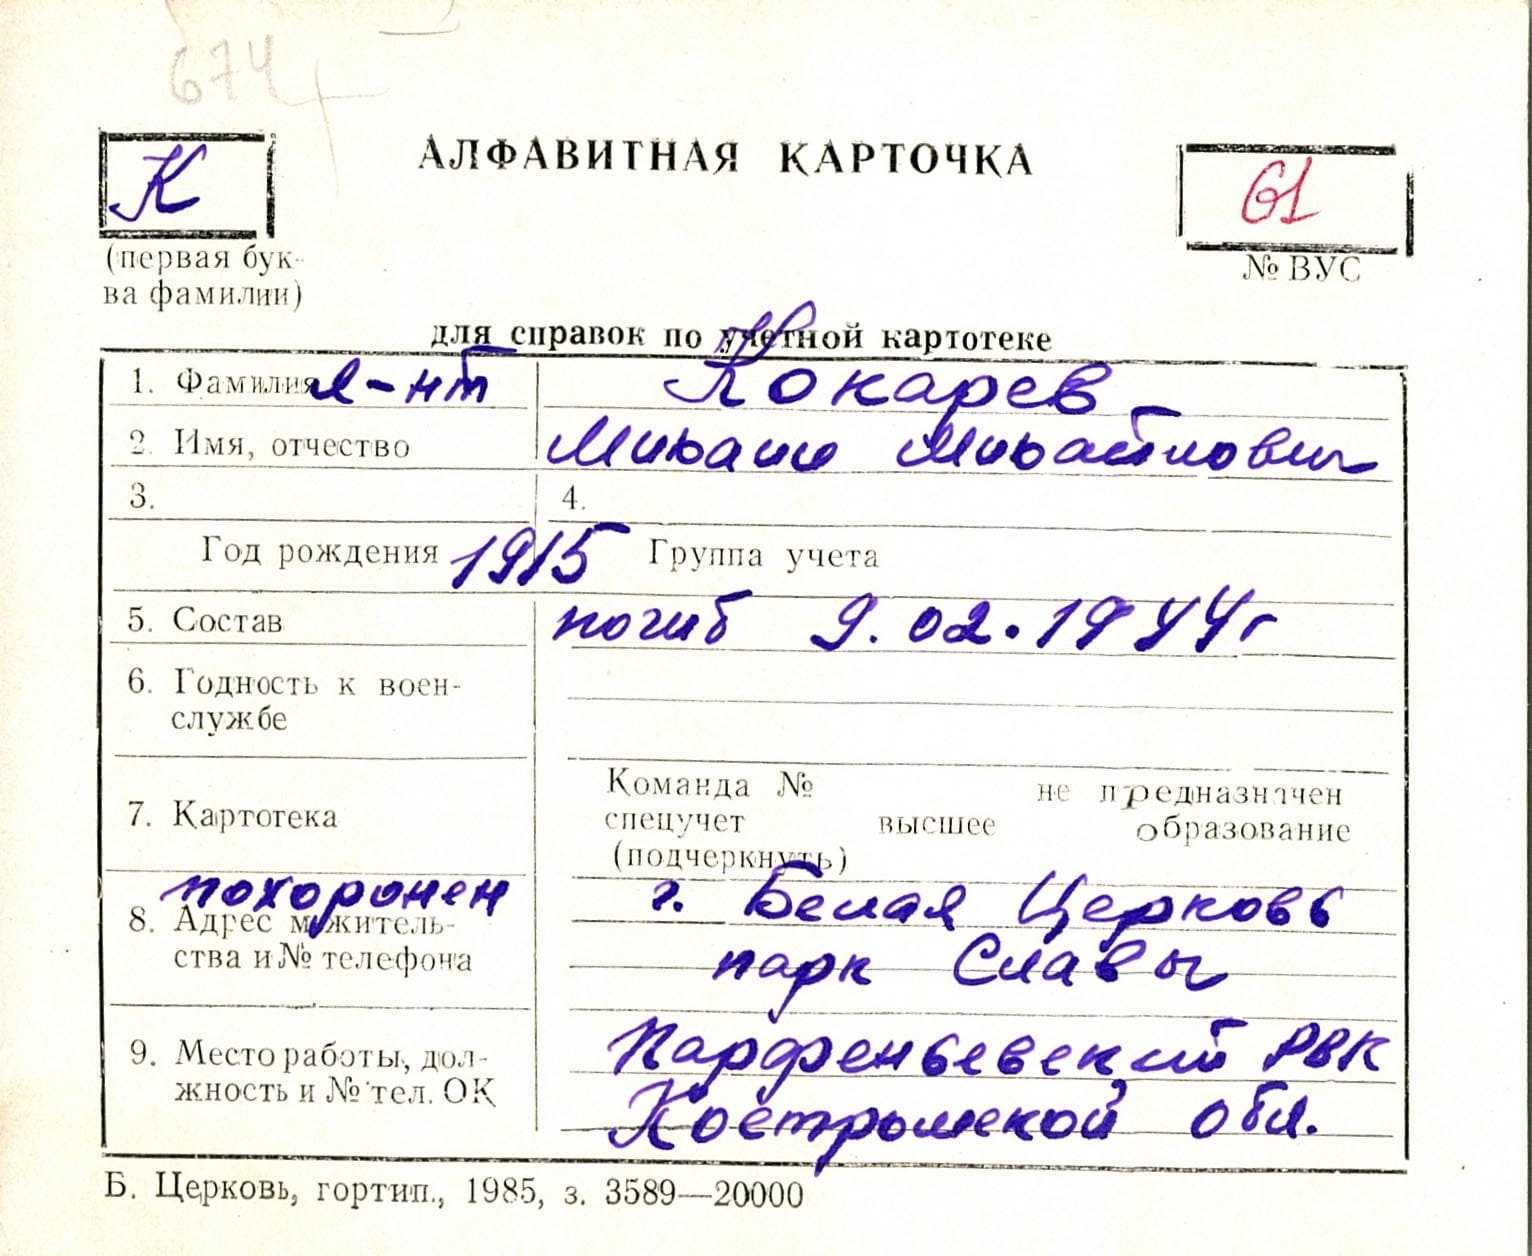 674
К
АЛФАВИТНАЯ КАРТОЧКА
61
(первая бук-
ва фамилии)
№ ВУС
для справок по учетной картотеке
1. Фамилия л-нт Кокарев
2. Имя, отчество Михаил Михайлович
3. 4.
Год рождения 1915 Группа учета
5. Состав погиб 9.02.1944г
6. Годность к воен-
службе
Команда № не предназначен
7. Картотека спецучет высшее образование
(подчеркнуть)
похоронен г. Белая Церковь
8. Адрес м/житель-
ства и № телефона парк Славы
9. Место работы, дол- Парфеньевский РВК
жность и № тел. ОК Костромской обл.
Б. Церковь, гортип., 1985, з. 3589—20000